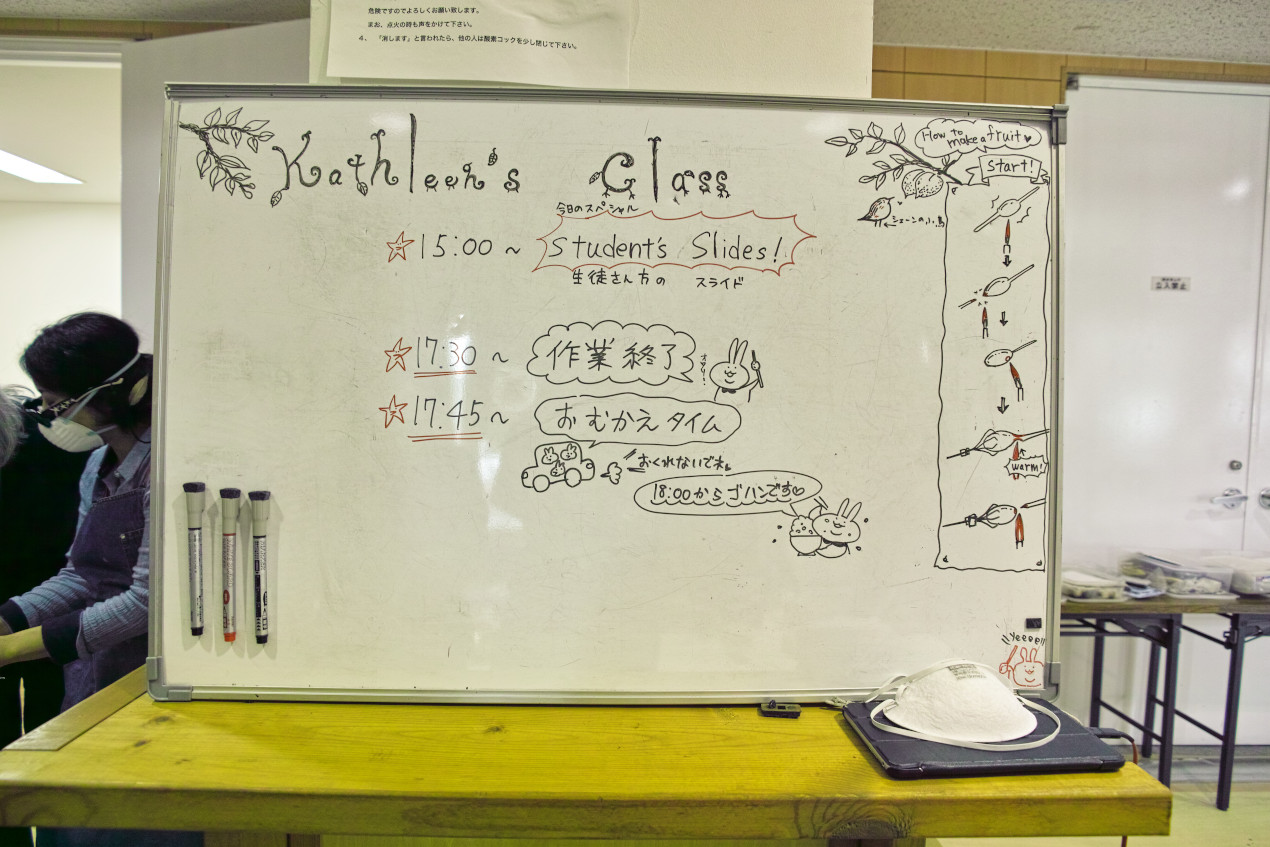 危険ですのでよろしくお願い致します。
まお、点火の時も声をかけて下さい。
4、「消します」と言われたら、他の人は酸素コックを少し閉じて下さい。
Kathleen's Class
How to make a fruit♥
Start!
今日のスペシャル
15:00 ~ Student's Slides!
生徒さん方の スライド
17:30 ~ 作業終了
17:45 ~ おむかえタイム
おくれないでネ
18:00からゴハンです♡
warm!
立入禁止
Yeeee!!